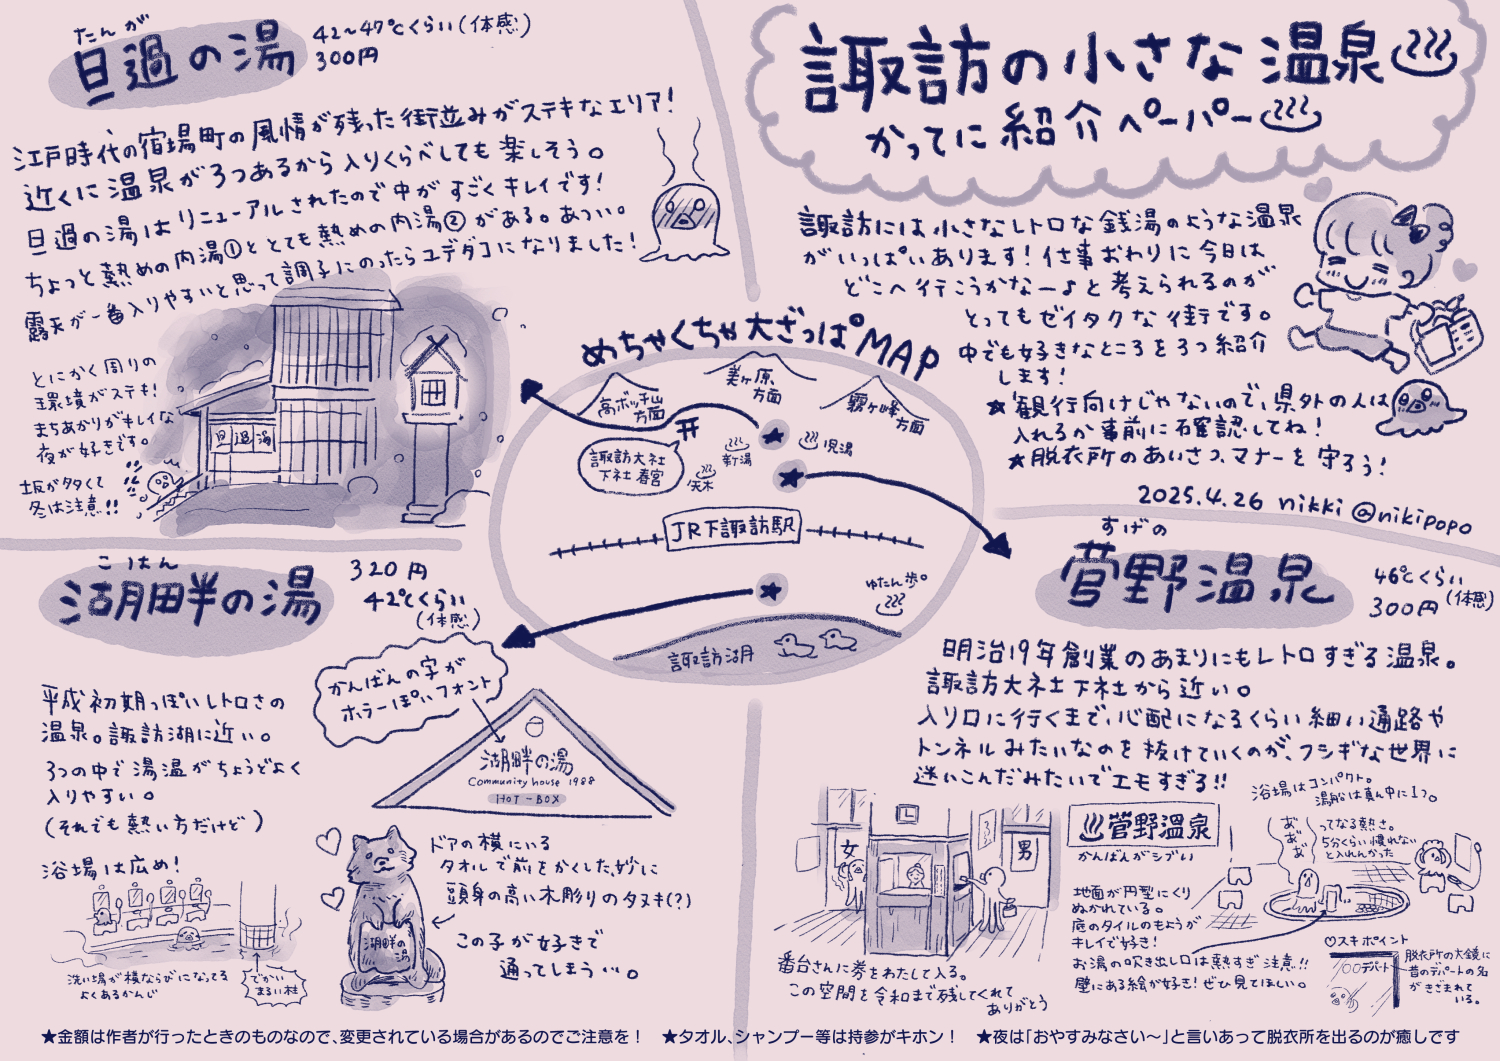 諏訪の小さな温泉
かってに紹介ペーパー
諏訪には小さなレトロな銭湯のような温泉
がいっぱいあります！仕事おわりに今日は
どこへ行こうかなー♪と考えられるのが
とってもゼイタクな街です。
中でも好きなところを3つ紹介
します！
★観行向けじゃないので、県外の人は
入れるか事前に確認してね！
★脱衣所のあいさつ、マナーを守ろう！
2025.4.26 nikki @nikipopo
たんが
旦過の湯
42～47℃くらい(体感)
300円
江戸時代の宿場町の風情が残った街並みがステキなエリア！
近くに温泉が3つあるから入りくらべしても楽しそう。
旦過の湯はリニューアルされたので中がすごくキレイです！
ちょっと熱めの内湯①ととても熱めの内湯②がある。あつい。
露天が一番入りやすいと思って調子にのったらユデダコになりました！
とにかく周りの
環境がステキ！
まちあかりがキレイな
夜が好きです。
坂が多くて
冬は注意!!
旦過湯
めちゃくちゃ大ざっぱMAP
高ボッチ山
方面
美ヶ原
方面
霧ヶ峰
方面
諏訪大社
下社 春宮
新湯
児湯
矢木
JR下諏訪駅
ゆたん歩°
諏訪湖
こはん
湖畔の湯
320円
42℃くらい
(体感)
かんばんの字が
ホラーっぽいフォント
平成初期っぽいレトロさの
温泉。諏訪湖に近い。
3つの中で湯温がちょうどよく
入りやすい。
(それでも熱い方だけど)
浴場は広め！
洗い場が横ならびになってる
よくあるかんじ
でかい
まるい柱
湖畔の湯
Community house 1988
HOT-BOX
ドアの横にいる
タオルで前をかくした、妙に
頭身の高い木彫りのタヌキ(?)
この子が好きで
通ってしまう…。
湖畔の
湯
すげの
菅野温泉
46℃くらい
(体感)
300円
明治19年創業のあまりにもレトロすぎる温泉。
諏訪大社下社から近い。
入り口に行くまで、心配になるくらい細い通路や
トンネルみたいなのを抜けていくのが、フシギな世界に
迷いこんだみたいでエモすぎる!!
女
男
番台さんに券をわたして入る。
この空間を令和まで残してくれて
ありがとう
菅野温泉
かんばんがシブい
浴場はコンパクト。
湯船は真ん中に1つ。
あ゛
あ゛
あ
ってなる熱さ。
5分くらい慣れない
と入れんかった
地面が円型にくり
ぬかれている。
底のタイルのもようが
キレイで好き！
お湯の吹き出し口は熱すぎ注意!!
壁にある絵が好き！ぜひ見てほしい。
♡スキポイント
○○デパート
脱衣所の大鏡に
昔のデパートの名
がきざまれて
いる。
★金額は作者が行ったときのものなので、変更されている場合があるのでご注意を！ ★タオル、シャンプー等は持参がキホン！ ★夜は「おやすみなさい～」と言いあって脱衣所を出るのが癒しです